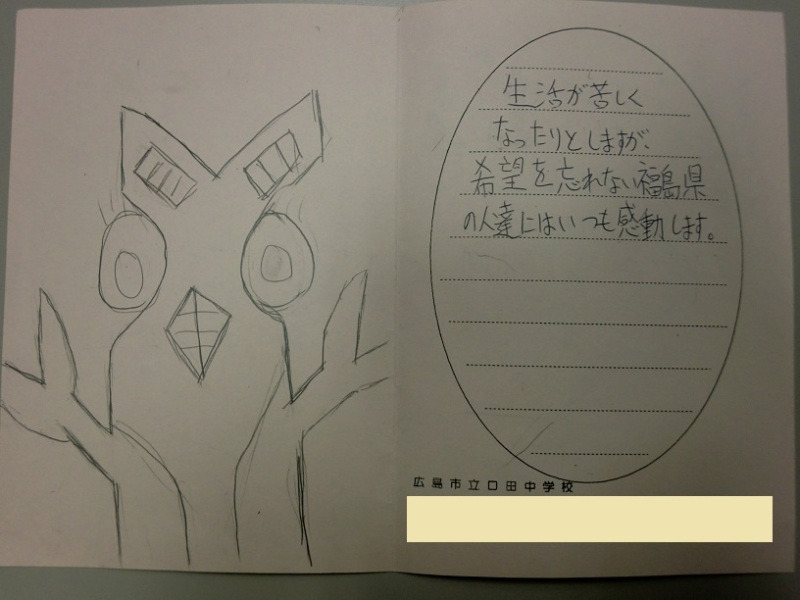 生活が苦しく
なったりとしますが、
希望を忘れない福島県
の人達にはいつも感動します。
広島市立口田中学校